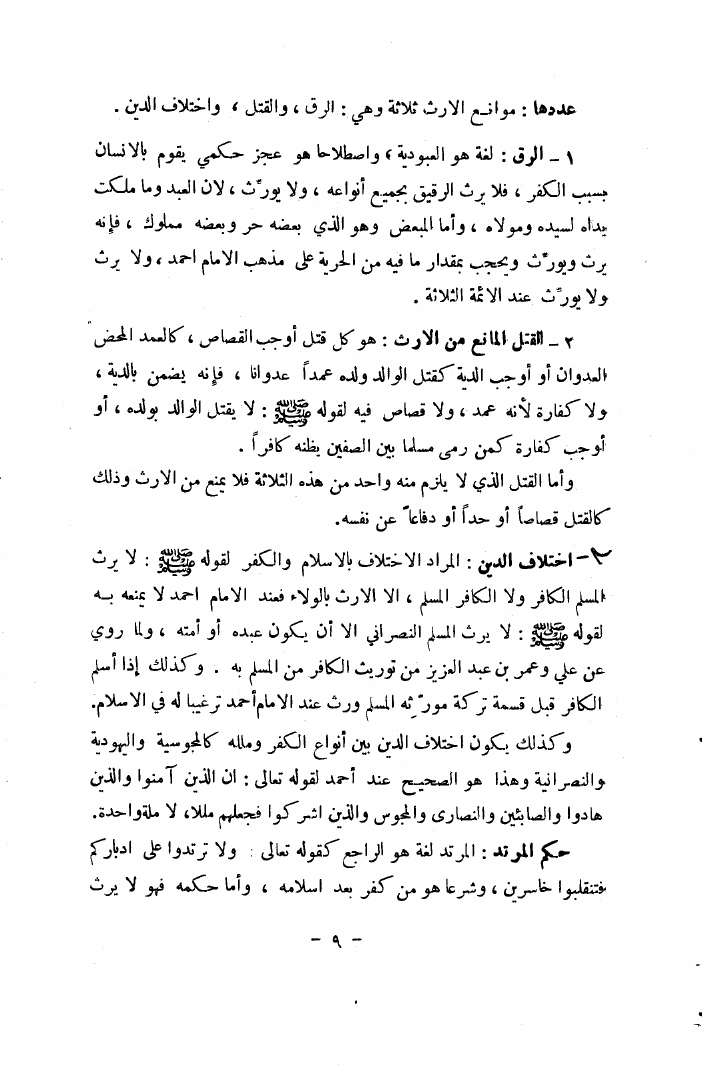 عددها : موانع الارث ثلاثة وهي : الرق ، والقتل ، واختلاف الدين .
١ - الرق : لغة هو العبودية ، واصطلاحا هو عجز حكمي يقوم بالانسان
بسبب الكفر ، فلا يرث الرقيق بجميع أنواعه ، ولا يورّث ، لان العبد وما ملكت
يداه لسيده ومولاه ، وأما المبعض وهو الذي بعضه حر وبعضه مملوك ، فإنه
يرث ويورّث ويحجب بمقدار ما فيه من الحرية على مذهب الامام احمد ، ولا يرث
ولا يورّث عند الائمة الثلاثة .
٢ - القتل المانع من الارث : هو كل قتل أوجب القصاص ، كالعمد المحض
العدوان أو أوجب الدية كقتل الوالد ولده عمداً عدوانا ، فإنه يضمن بالدية ،
ولا كفارة لأنه عمد ، ولا قصاص فيه لقوله ﷺ : لا يقتل الوالد بولده ، أو
أوجب كفارة كمن رمى مسلما بين الصفين يظنه كافراً .
وأما القتل الذي لا يلزم منه واحد من هذه الثلاثة فلا يمنع من الارث وذلك
كالقتل قصاصاً أو حداً أو دفاعاً عن نفسه.
٣- اختلاف الدين : المراد الاختلاف بالاسلام والكفر لقوله ﷺ : لا يرث
المسلم الكافر ولا الكافر المسلم ، الا الارث بالولاء فعند الامام احمد لا يمنعه به
لقوله ﷺ : لا يرث المسلم النصراني الا أن يكون عبده أو أمته ، ولما روي
عن علي وعمر بن عبد العزيز من توريث الكافر من المسلم به . وكذلك إذا أسلم
الكافر قبل قسمة تركة مورّثه المسلم ورث عند الامام أحمد ترغيبا له في الاسلام.
وكذلك يكون اختلاف الدين بين أنواع الكفر وملله كالمجوسية واليهودية
والنصرانية وهذا هو الصحيح عند أحمد لقوله تعالى : ان الذين آمنوا والذين
هادوا والصابئين والنصارى والمجوس والذين اشركوا فجعلهم مللا، لا ملة واحدة.
حكم المرتد : المرتد لغة هو الراجع كقوله تعالى : ولا ترتدوا على ادباركم
فتنقلبوا خاسرين ، وشرعا هو من كفر بعد اسلامه ، وأما حكمه فهو لا يرث
- ٩ -